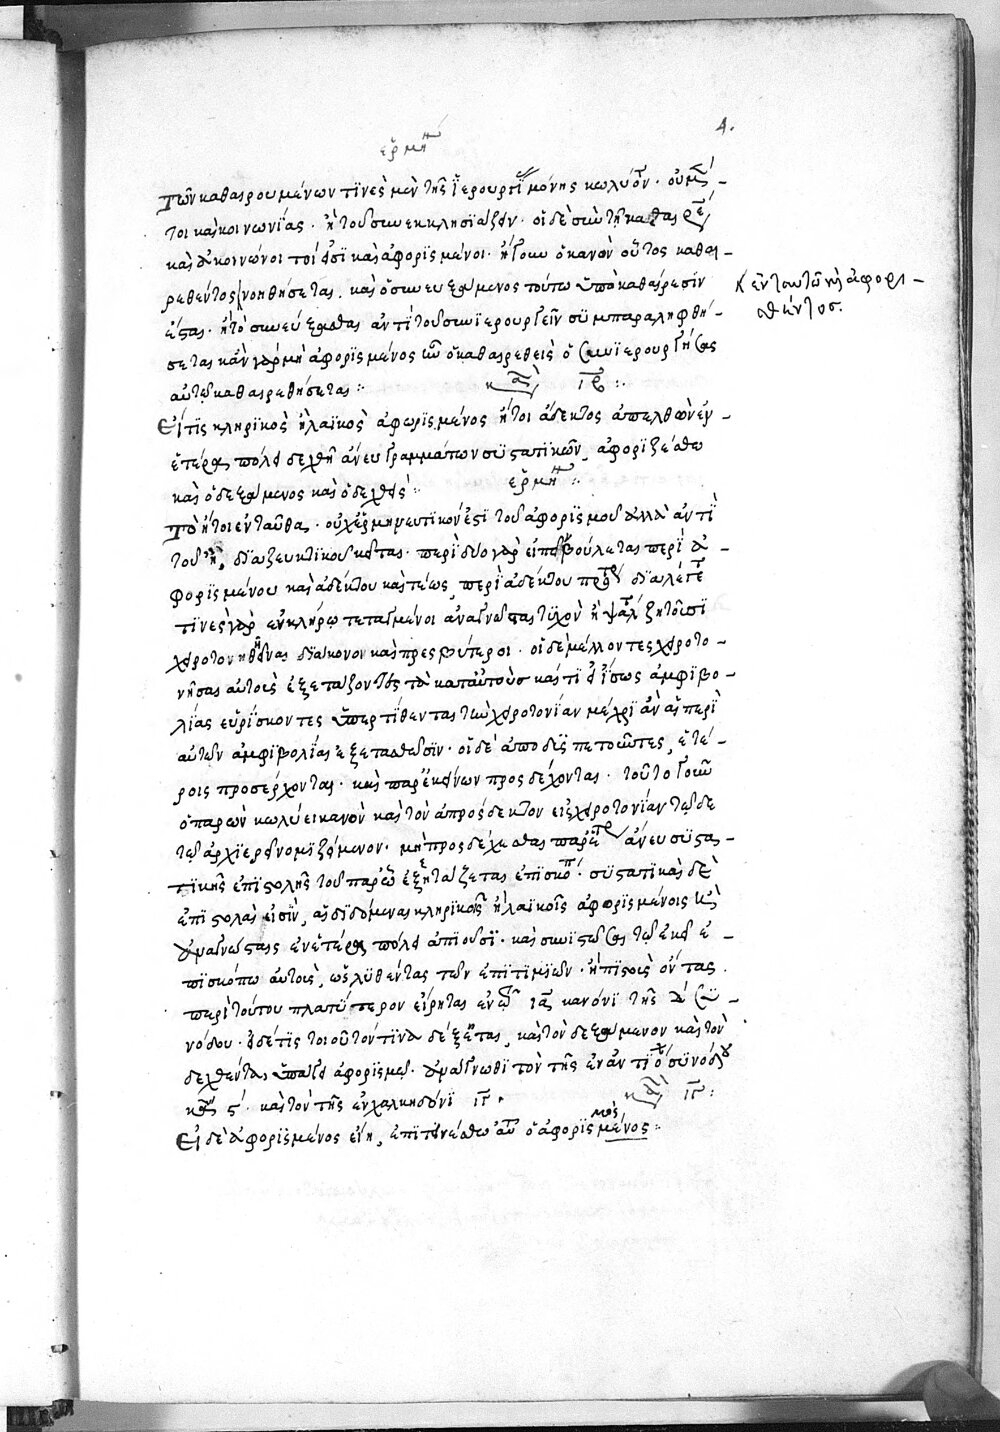 4.
ἑρμη
Τῶν καθαιρουμένων τινὲς μὲν τῆς ἱερουργί μόνης κωλύον. οὐ μ
τοι καὶ κοινωνίας. ἢ τοῦ συνεκκλησιάζειν. οἱ δὲ σὺν τῇ καθαιρέ
καὶ ἀκοινώνητοί εἰσι καὶ ἀφορισμένοι. ἤγουν ὁ κανὼν οὗτος καθαι-
ρεθέντος νοηθήσεται. καὶ ὁ συνευξάμενος τούτω ὑπὸ καθαίρεσίν
κ ἐν ταυτῶ καὶ ἀφορι-
σθέντος.
ἐσται. ἢ τὸ συνεύξασθαι ἀντὶ τοῦ συνιερουργεῖν συμπαραληφθή-
σεται κἂν γὰρ μὴ ἀφορισμένος ὦ ὁ καθαιρεθεὶς ὁ συνιερουργήσας
αὐτῶ καθαιρεθήσεται:
κα ιβ:
Εἴ τις κληρικὸς ἢ λαϊκὸς ἀφωρισμένος ἤτοι ἄδεκτος ἀπελθὼν ἐν
ἑτέρα πόλει δεχθῆ ἄνευ γραμμάτων συστατικῶν, ἀφοριζέσθω
καὶ ὁ δεξάμενος καὶ ὁ δεχθείς:
ἑρμη:
Τὸ ἤτοι ἐνταῦθα. οὐχ ἑρμηνευτικόν ἐστι τοῦ ἀφορισμοῦ ἀλλὰ ἀντὶ
τοῦ ἢ, διαζευκτικοῦ κεῖται. περὶ δύο γὰρ εἰπεῖν βούλεται περὶ ἀ-
φορισμένου καὶ ἀδέκτου καὶ τέως, περὶ ἀδέκτου πρ διαλέγε
τινὲς γὰρ ἐν κλήρω τεταγμένοι ἀναγνῶσται τυχὸν ἢ ψάλ ζητοῦσι
χειροτονηθῆναι διάκονοι καὶ πρεσβύτεροι. οἱ δὲ μέλλοντες χειροτο-
νῆσαι αὐτοὺς ἐξετάζοντες τὰ κατ αὐτοὺς καί τι ἴσως ἀμφιβο-
λίας εὑρίσκοντες ὑπερτίθενται τὴν χειροτονίαν μέχρι ἂν αἱ περὶ
αὐτῶν ἀμφιβολίαι ἐξετασθῶσιν. οἱ δὲ ἀποδυσπετοῦντες, ἑτέ-
ροις προσέρχονται. καὶ παρ ἐκείνων προσδέχονται. τοῦτο γοῦν
ὁ παρὼν κωλύει κανὼν καὶ τὸν ἀπρόσδεκτον εἰς χειροτονίαν τῶ δε
τῶ ἀρχιερεῖ νομιζόμενον. μὴ προσδέχεσθαι παρ ἄνευ συστα-
τικῆς ἐπιστολῆς τοῦ παρ ἐξητάζεται ἐπισκό. συστατικαὶ δὲ
ἐπιστολαὶ εἰσὶν, αἱ διδόμεναι κληρικοῖς ἢ λαϊκοῖς ἀφορισμένοις καὶ
ἀναγνώσταις ἐν ἑτέρα πόλει ἀπιοῦσι. καὶ συνιστῶσαι τῶ ἐκεῖ ἐ-
πισκόπω αὐτοὺς, ὡς λυθέντας τῶν ἐπιτιμίων. ἢ πιστοὺς ὄντας.
περὶ τούτου πλατύτερον εἴρηται ἐν ια κανόνι τῆς ἀ συ-
νόδου. εἰ δέ τις τοιοῦτόν τινα δέξηται, καὶ τὸν δεξάμενον καὶ τὸν
δεχθέντα ὑπάγει ἀφορισμῶ. ἀνάγνωθι τὸν τῆς ἐν ἀντιο συνόδου
κα ς. καὶ τὸν τῆς ἐν χαλκηδόνι ιγ.
κα ιγ:
Εἰ δὲ ἀφορισμένος εἴη, ἐπιτεινέσθω αὐ ὁ ἀφορισμένος:
μὸς